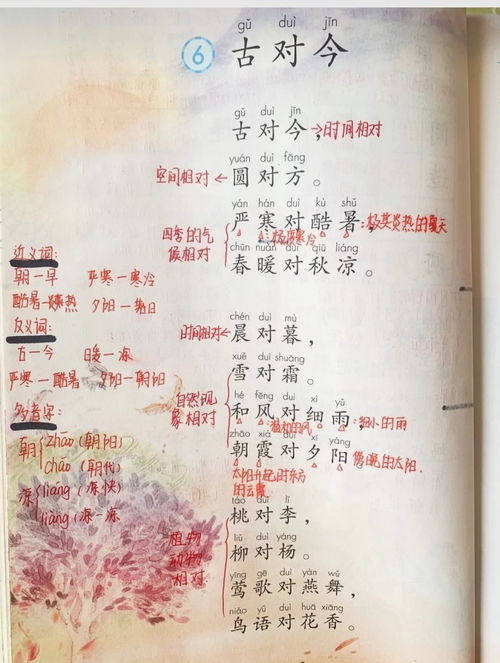 gǔ duì jīn
6 古对今
gǔ duì jīn
古对今，→时间相对
yuán duì fāng
空间相对← 圆对方。
yán hán duì kù shǔ
严寒对酷暑，:极其炎热的夏天
:极其寒冷
四季的气
候相对
chūn nuǎn duì qiū liáng
春暖对秋凉。
近义词:
朝—早 严寒—寒冷
酷暑—炎热 夕阳—
反义词:
古—今 暖—凉
严寒—酷暑 夕阳—朝阳
多音字:
朝 zhāo (朝阳)
cháo (朝代)
凉 liáng (凉快)
liàng (凉一凉
chén duì mù
时间相对← 晨对暮，
xuě duì shuāng
雪对霜。
自然现
象相对
hé fēng duì xì yǔ
和风对细雨，:细小的雨
:温和的风
zhāo xiá duì xī yáng
朝霞对夕阳。傍晚的太阳.
太阳升起时东方
的云霞
táo duì lǐ
桃对李，
liǔ duì yáng
柳对杨。
植物
动物
相对
yīng gē duì yàn wǔ
莺歌对燕舞，
niǎo yǔ duì huā xiāng
鸟语对花香。